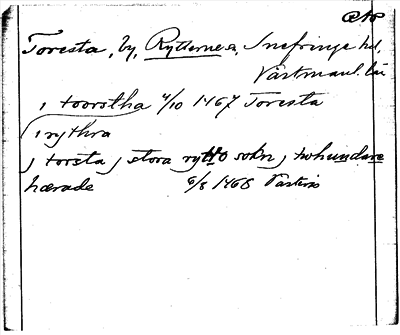 Toresta, by, Rytterne sn, Snefringe hd,
Västmanl. län
i toorstha 4/10 1467 Toresta
i rythra
j torsta j stora rytto sokn j twhundare
hærade 6/8 1468 Västerås